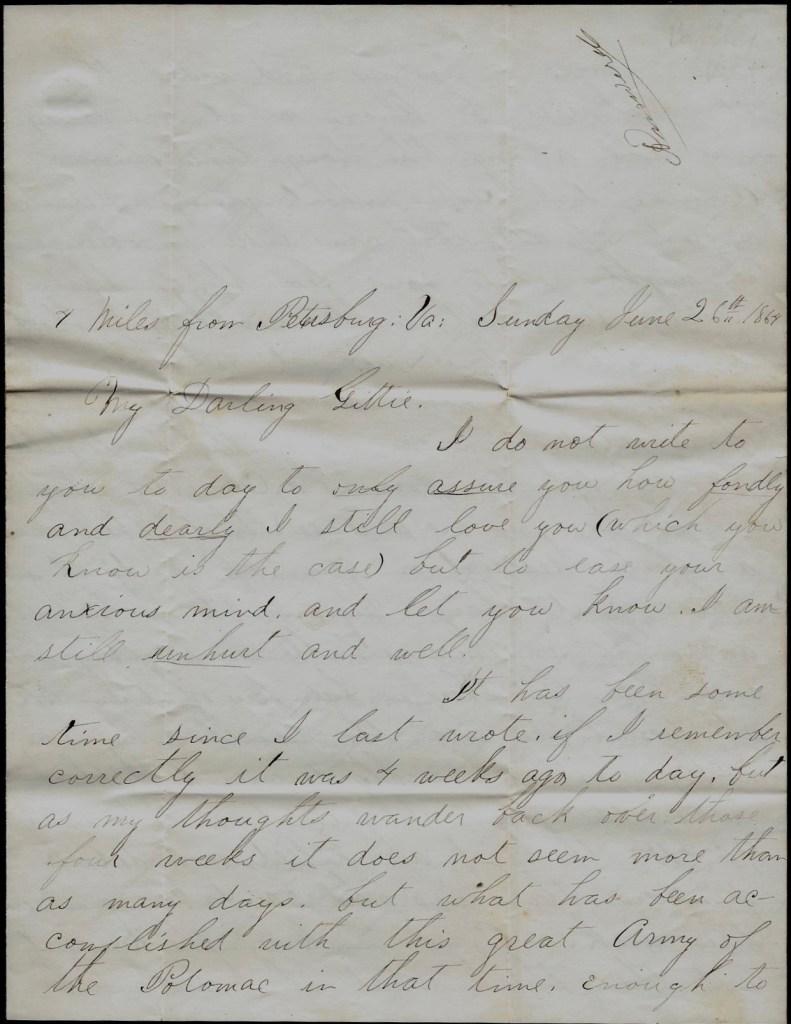 Miles from Petersburg: Va: Sunday June 26th 1864
My Darling Gittie.
I do not write to
you to day to only assure you how fondly
and dearly I still love you (which you
know is the case) but to ease your
anxious mind. and let you know. I am
still unhurt and well.
It has been some
time since I last wrote. if I remember
correctly it was 4 weeks ago to day. but
as my thoughts wander back over those
four weeks it does not seem more than
as many days. but what has been ac-
complished with this great Army of
the Potomac in that time. enough to